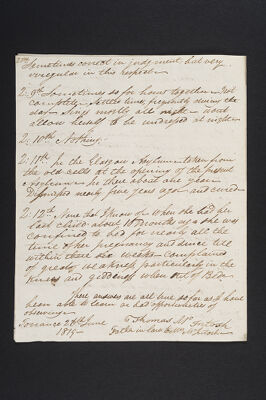 Sometimes correct in judgement but very
irregular in this respect
2. 9th Sometimes so for hours together Not
completely settles time frequently during the
day Sings mostly all night wont
allow herself to be undressed at night
2. 10th Nothing.
2. 11th In the Glasgow Asylum taken from
the old cells at the opening of the present
Asylum. he there about one year
Dismissed nearly five years ago and cured
2. 12th None that I know of. When she had her
last child about 18 months ago she was
confined to bed for nearly all the
time of her pregnancy and since till
within these six weeks complained
of great weakness particularly in the
knees and giddiness when out of Bed.
These answers are all true so far as I have
been able to learn or had opportunities of
observing
Torrance 28th June
1819
Thomas McIntosh
Father in law